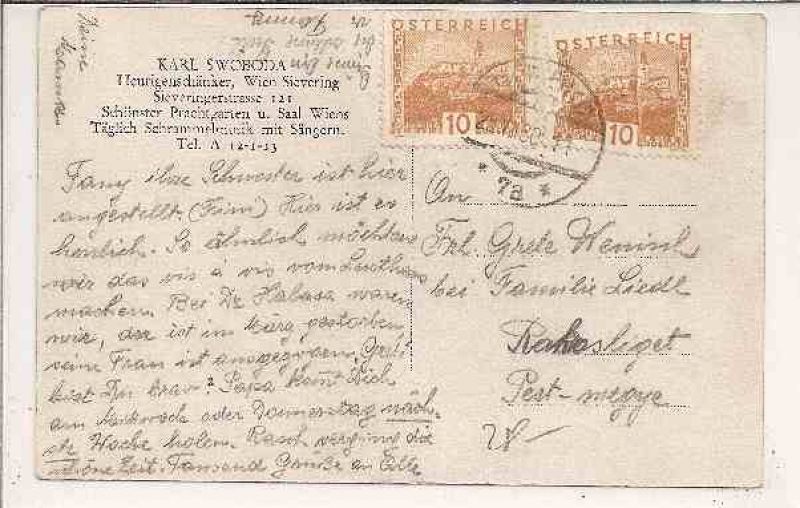 KARL SWOBODA
Heurigenschänker, Wien Sievering
Sieveringerstrasse 121
Schönster Prachtgarten u. Saal Wiens
Täglich Schrammelmusik mit Sängern.
Tel. A 12-1-13
ÖSTERREICH
10
ÖSTERREICH
10
* 7a *
Fany ihre Schwester ist hier
angestellt. (Fini) Hier ist es
herrlich. So ähnlich möchten
wir das vis á vis vom
machen. Bei Dr. Halasa waren
wir, der ist im März gestorben,
seine Frau ist ausgezogen. Greti
bist Du brav? Papa kommt Dich
am Mittwoch oder Donnerstag näch-
ste Woche holen. Rasch verging die
schöne Zeit. Tausend Grüße an Alle
An
Frl. Grete Wenisch
bei Familie Liedl
Rákosliget
Pest-megye